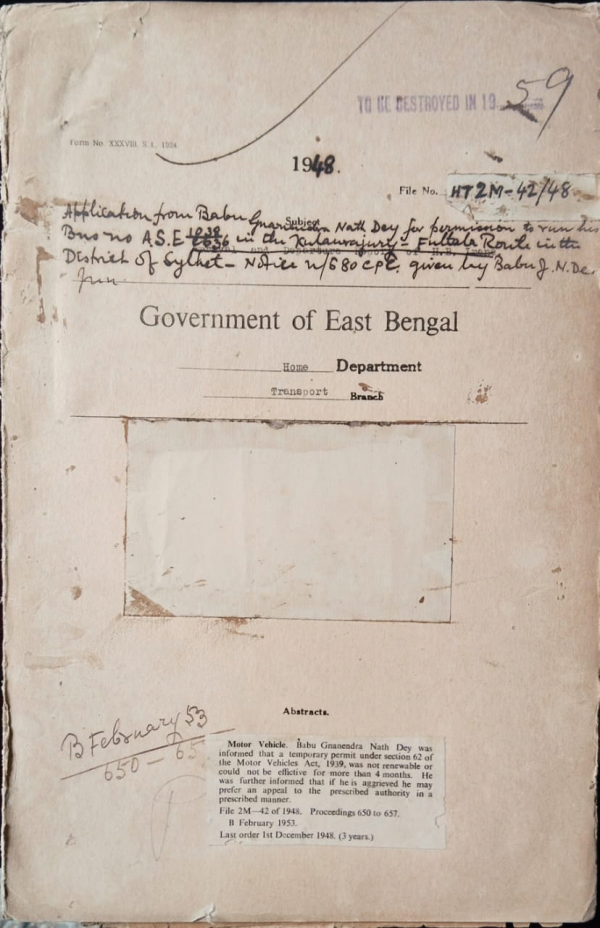 TO BE DESTROYED IN 19
59
Form No. XXXVIII, S.I., 1934
1948.
File No. HT 2M-42/48
Subject
Application from Babu Gnanendra Nath Dey for permission to run his
Bus no A.S.E in the Kulaurajury - Fultala Route in the
District of Sylhet - Notice u/s 80 CPC. given by Babu J.N. De
Government of East Bengal
Home Department
Transport Branch
Abstracts.
B February 53
650 - 65
Motor Vehicle. Babu Gnanendra Nath Dey was
informed that a temporary permit under section 62 of
the Motor Vehicles Act, 1939, was not renewable or
could not be effictive for more than 4 months. He
was further informed that if he is aggrieved he may
prefer an appeal to the prescribed authority in a
prescribed manner.
File 2M—42 of 1948. Proceedings 650 to 657.
B February 1953.
Last order 1st December 1948. (3 years.)